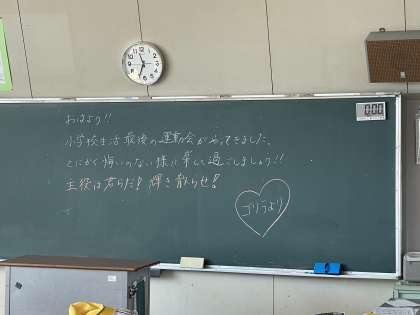 おはよう!!
小学校生活最後の運動会がやってきました。
とにかく悔いのない様に楽しく過ごしましょう!!
主役は君らだ! 輝き散らせ!
ゴリラより
0:00